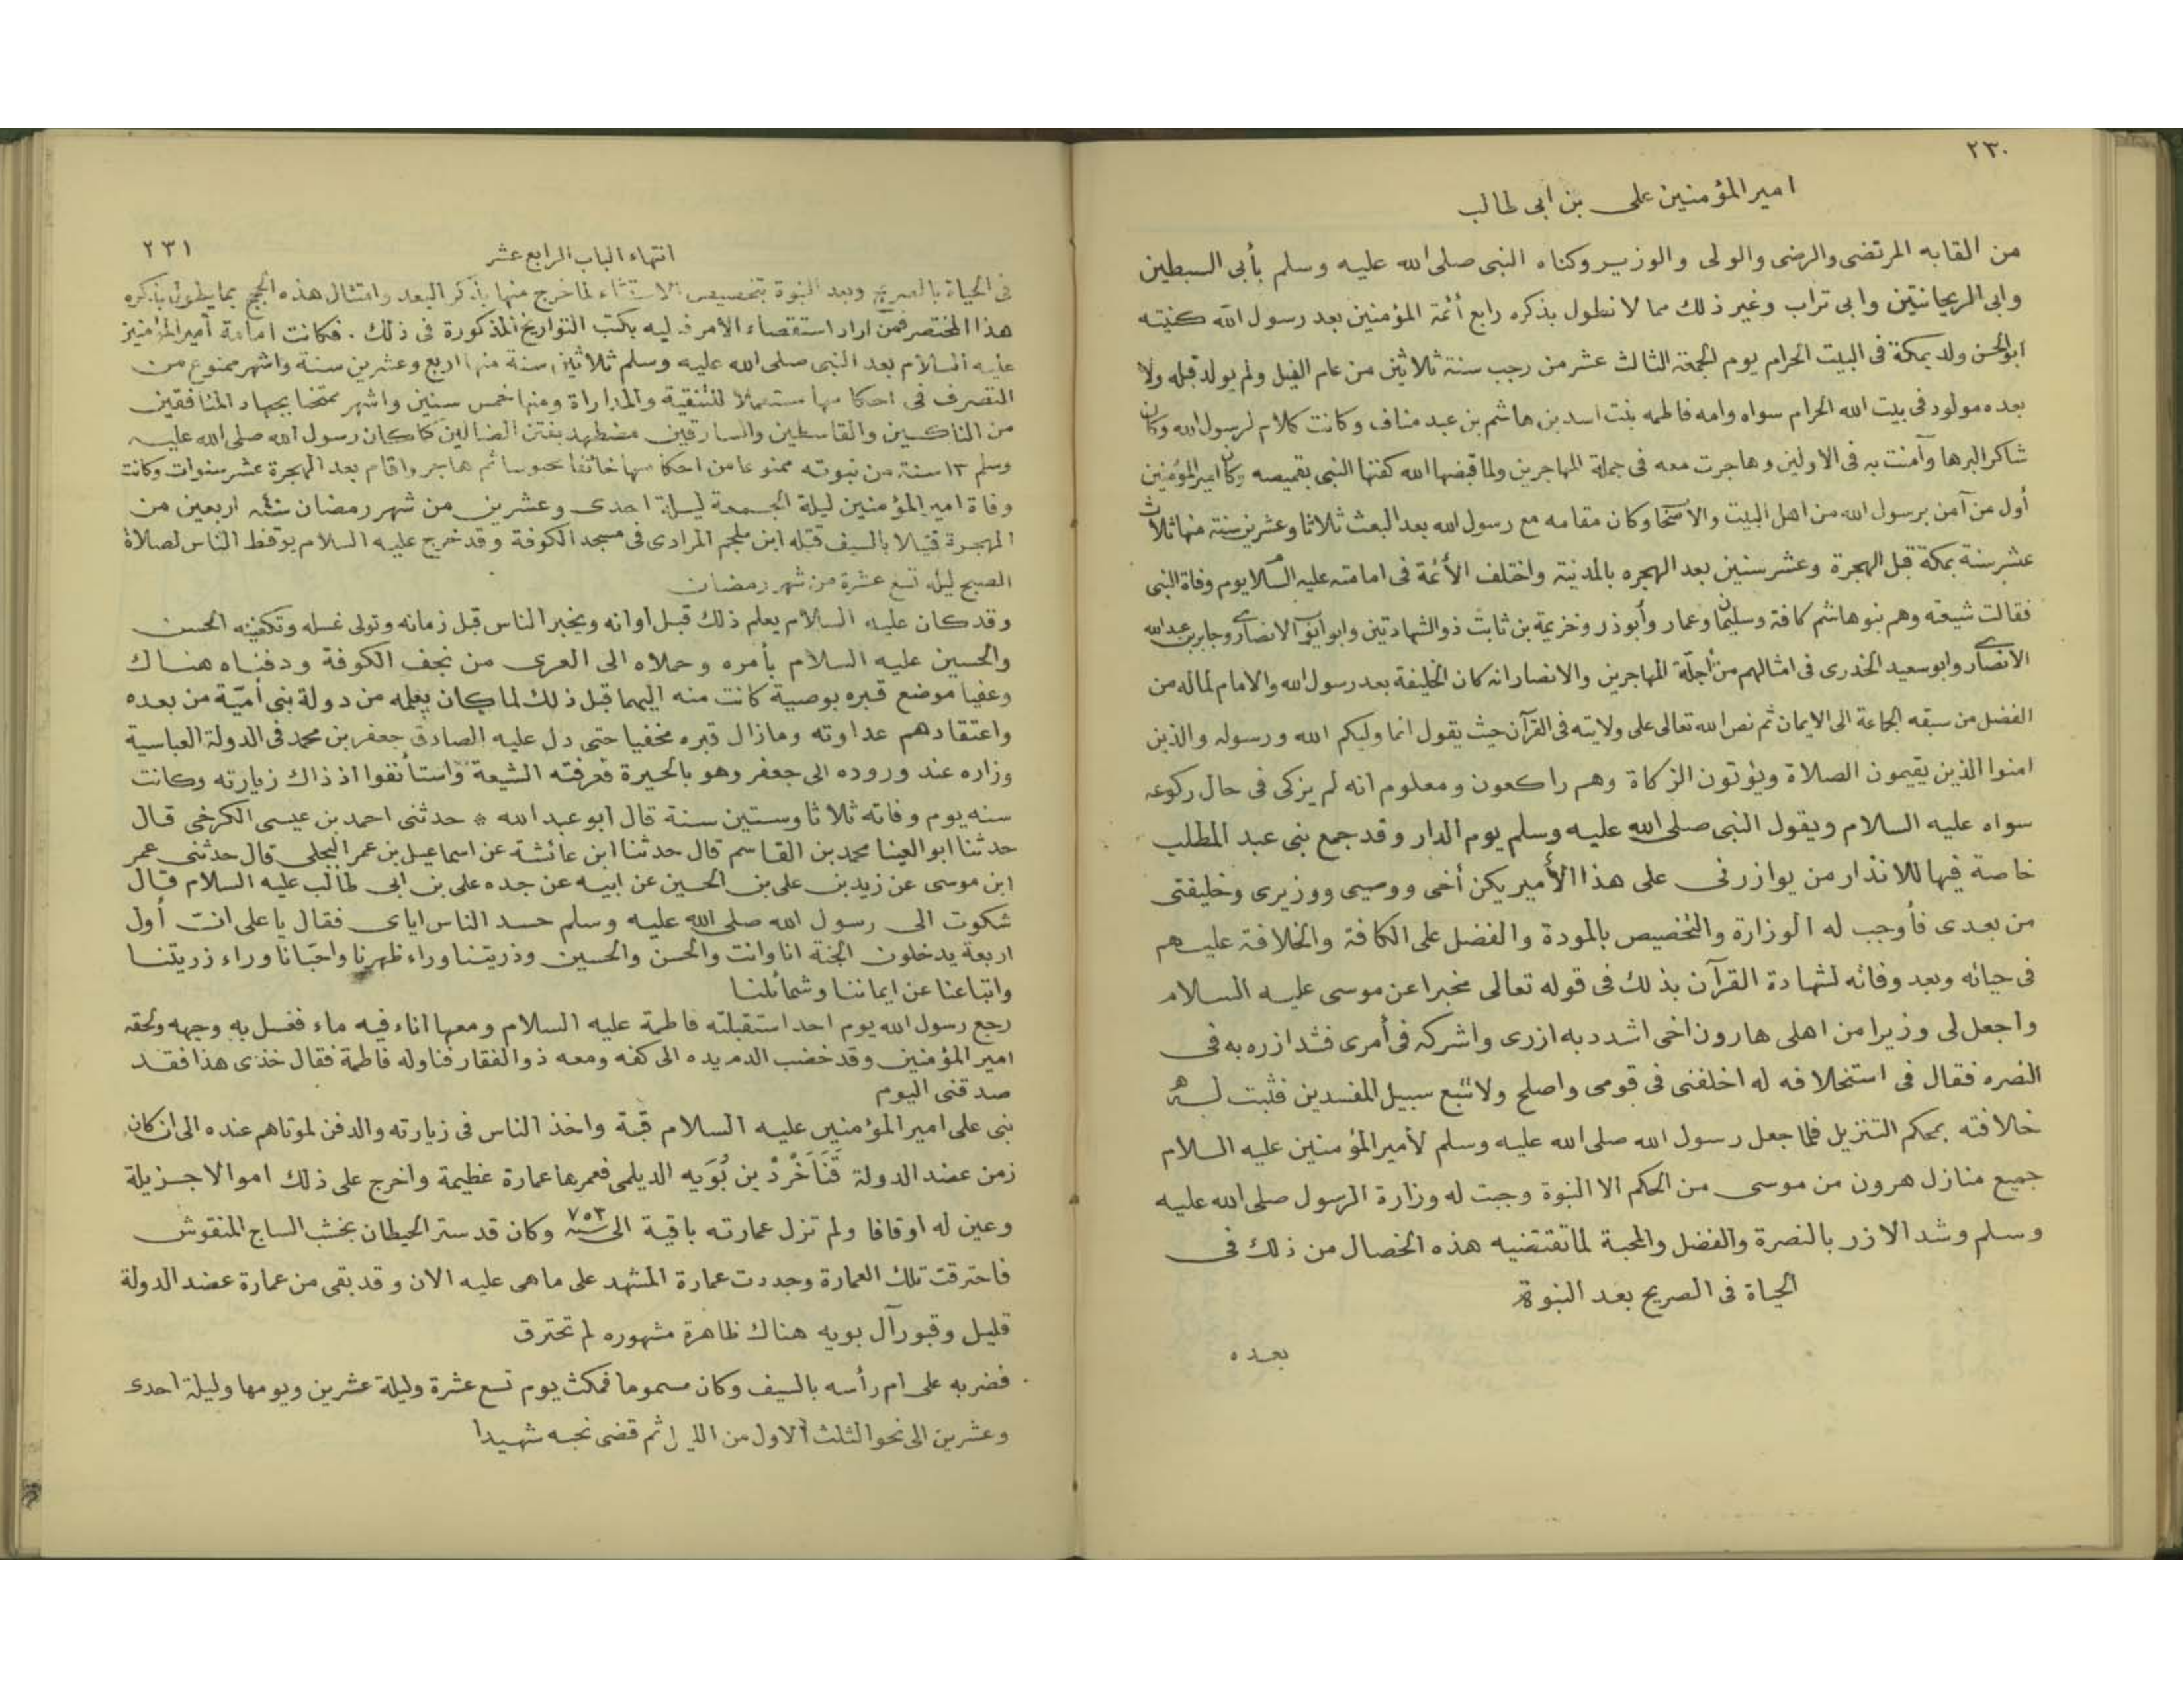 ٢٣٠
امير المؤمنين على بن ابى طالب
من القابه المرتضى والرضى والولى والوزير وكناه النبى صلى الله عليه وسلم بأبى السبطين
وابى الريحانتين وابى تراب وغير ذلك مما لا نطول بذكره رابع أئمة المؤمنين بعد رسول الله كنيته
ابو الحسن ولد بمكة فى البيت الحرام يوم الجمعة الثالث عشر من رجب سنة ثلاثين من عام الفيل ولم يولد قبله ولا
بعده مولود فى بيت الله الحرام سواه وامه فاطمه بنت اسد بن هاشم بن عبد مناف وكانت كلام لرسول الله وكان
شاكرا لبرها وآمنت به فى الاولين وهاجرت معه فى جملة المهاجرين ولما قبضها الله كفنها النبى بقميصه وكان امير المؤمنين
أول من آمن برسول الله من اهل البيت والأصحا وكان مقامه مع رسول الله بعد البعث ثلاثا وعشرين سنة منها ثلاث
عشر سنة بمكة قبل الهجرة وعشر سنين بعد الهجره بالمدنية واختلف الأئمة فى امامته عليه السلام يوم وفاة النبى
فقالت شيعته وهم بنو هاشم كافة وسليمان وعمار وأبوذر وخزيمة بن ثابت ذو الشهادتين وابو ايوب الانصارى وجابر بن عبد الله
الانصارى وابو سعيد الخدرى فى امثالهم من أجلّة المهاجرين والانصار انه كان الخليفة بعد رسول الله والامام لماله من
الفضل من سبقه الجماعة الى الايمان ثم نص الله تعالى على ولايته فى القرآن حيث يقول انما وليكم الله ورسوله والذين
امنوا الذين يقيمون الصلاة ويؤتون الزكاة وهم راكعون ومعلوم انه لم يزكى فى حال ركوعه
سواه عليه السلام ويقول النبى صلى الله عليه وسلم يوم الدار وقد جمع بنى عبد المطلب
خاصة فيها للانذار من يوازرنى على هذا الأمير يكن أخى ووصيى ووزيرى وخليفتى
من بعدى فأوجب له الوزارة والتخصيص بالمودة والفضل على الكافة والخلافة عليهم
فى حياته وبعد وفاته لشهادة القرآن بذلك فى قوله تعالى مخبرا عن موسى عليه السلام
واجعل لى وزيرا من اهلى هارون اخى اشدد به ازرى واشركه فى أمرى فشد ازره به فى
النصره فقال فى استخلافه له اخلفنى فى قومى واصلح ولا تتبع سبيل المفسدين فثبت له
خلافته بمحكم التنزيل فلما جعل رسول الله صلى الله عليه وسلم لأمير المؤمنين عليه السلام
جميع منازل هرون من موسى من الحكم الا النبوة وجبت له وزارة الرسول صلى الله عليه
وسلم وشد الازر بالنصرة والفضل والمحبة لما تقتضيه هذه الخصال من ذلك فى
الحياة فى الصريح بعد النبوة
بعده
انتهاء الباب الرابع عشر ٢٣١
فى الحياة بالصريح وبعد النبوة بتخصيص الاستثاء لما خرج منها بذكر البعد وامتثال هذه الحجج بما يطول بذكره
هذا المختصر فمن اراد استقصاء الأمر فـ ليه بكتب التواريخ المذكورة فى ذلك . فكانت امامة أمير المؤمنيز
عليه السلام بعد النبى صلى الله عليه وسلم ثلاثين سنة منها اربع وعشرين سنة واشهر ممنوع من
التصرف فى احكامها مستعملا للتقية والمداراة ومنها خمس سنين واشهر ممتحنا بجهاد المنافقين
من الناكسين والقاسطين والمارقين مضطهد بفتن الضالين كما كان رسول الله صلى الله عليه
وسلم ١٣ سنة من نبوته ممنوعا من احكامها خائفا محبوسا ثم هاجر واقام بعد الهجرة عشر سنوات وكانت
وفاة امير المؤمنين ليلة الجمعة ليلة احدى وعشرين من شهر رمضان سنة ٤٠ اربعين من
الهجرة قتيلا بالسيف قتله ابن ملجم المرادى فى مسجد الكوفة وقد خرج عليه السلام يوقظ الناس لصلاة
الصبح ليلة تسع عشرة من شهر رمضان
وقد كان عليه السلام يعلم ذلك قبل اوانه ويخبر الناس قبل زمانه وتولى غسله وتكفينه الحسن
والحسين عليه السلام بأمره وحملاه الى الغرى من نجف الكوفة ودفناه هناك
وعفيا موضع قبره بوصية كانت منه اليهما قبل ذلك لما كان يعلمه من دولة بنى أميّة من بعده
واعتقادهم عداوته ومازال قبره مخفيا حتى دل عليه الصادق جعفر بن محمد فى الدولة العباسية
وزاره عند وروده الى جعفر وهو بالحيرة فعرفته الشيعة واستأنفوا اذ ذاك زيارته وكانت
سنه يوم وفاته ثلاثا وستين سنة قال ابو عبد الله * حدثنى احمد بن عيسى الكرخى قال
حدثنا ابو العينا محمد بن القاسم قال حدثنا ابن عائشة عن اسماعيل بن عمر البجلى قال حدثنى عمر
ابن موسى عن زيد بن على بن الحسين عن ابيه عن جده على بن ابى طالب عليه السلام قال
شكوت الى رسول الله صلى الله عليه وسلم حسد الناس اياى فقال يا على انت أول
اربعة يدخلون الجنة انا وانت والحسن والحسين وذريتنا وراء ظهرنا واحبانا وراء زريتنا
واتباعنا عن ايماننا وشمائلنا
رجع رسول الله يوم احد استقبلته فاطمة عليه السلام ومعها اناء فيه ماء فغسل به وجهه ولحقه
امير المؤمنين وقد خضب الدم يده الى كفه ومعه ذو الفقار فناوله فاطمة فقال خذى هذا فقد
صدقنى اليوم
بنى على امير المؤمنين عليه السلام قبة واخذ الناس فى زيارته والدفن لموتاهم عنده الى ان كان
زمن عضد الدولة قَنَاَخْرُدْ بن بُوَيه الديلمى فعمرها عمارة عظيمة واخرج على ذلك اموالا جزيلة
وعين له اوقافا ولم تزل عمارته باقية الى سنة ٧٥٣ وكان قد ستر الحيطان بخشب الساج المنقوش
فاحترقت تلك العمارة وجددت عمارة المشهد على ماهى عليه الان وقد بقى من عمارة عضد الدولة
قليل وقبور آل بويه هناك ظاهرة مشهوره لم تحترق
فضربه على ام رأسه بالسيف وكان مسموما فمكث يوم تسع عشرة وليلة عشرين ويومها وليلة احدى
وعشرين الى نحو الثلث الاول من الليل ثم قضى نحبه شهيدا